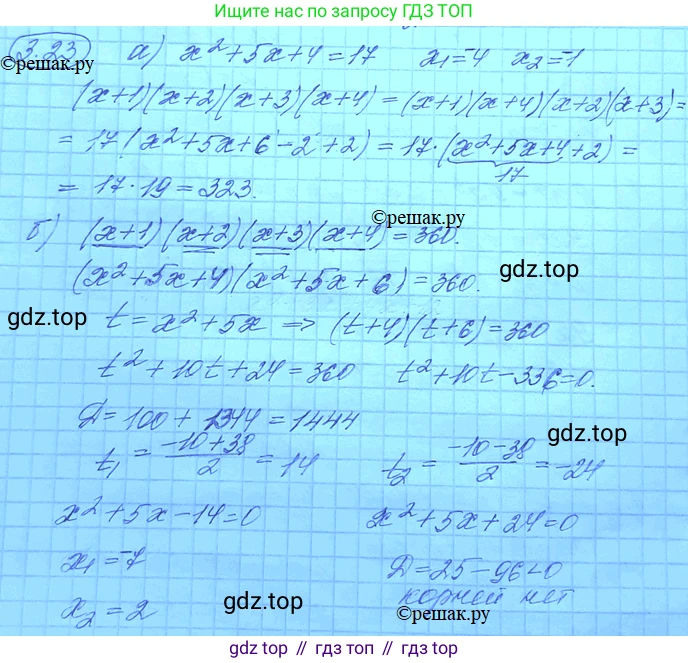 Ищите нас по запросу ГДЗ ТОП
3.23 а) x²+5x+4=17 x₁=-4 x₂=-1
©решак.ру
(x+1)(x+2)(x+3)(x+4)=(x+1)(x+4)(x+2)(x+3)=
=17(x²+5x+6-2+2)=17·(x²+5x+4+2)=
17
=17·19=323.
©решак.ру
б) (x+1)(x+2)(x+3)(x+4)=360.
(x²+5x+4)(x²+5x+6)=360.
gdz.top
gdz.top t=x²+5x => (t+4)(t+6)=360
t²+10t+24=360 t²+10t-336=0.
D=100+1344=1444
gdz.top
t₁=(-10+38)/2=14 t₂=(-10-38)/2=-24
x²+5x-14=0 x²+5x+24=0
x₁=-7 D=25-96<0
x₂=2 корней нет
gdz.top ©решак.ру
gdz.top // гдз топ // гдз.топ